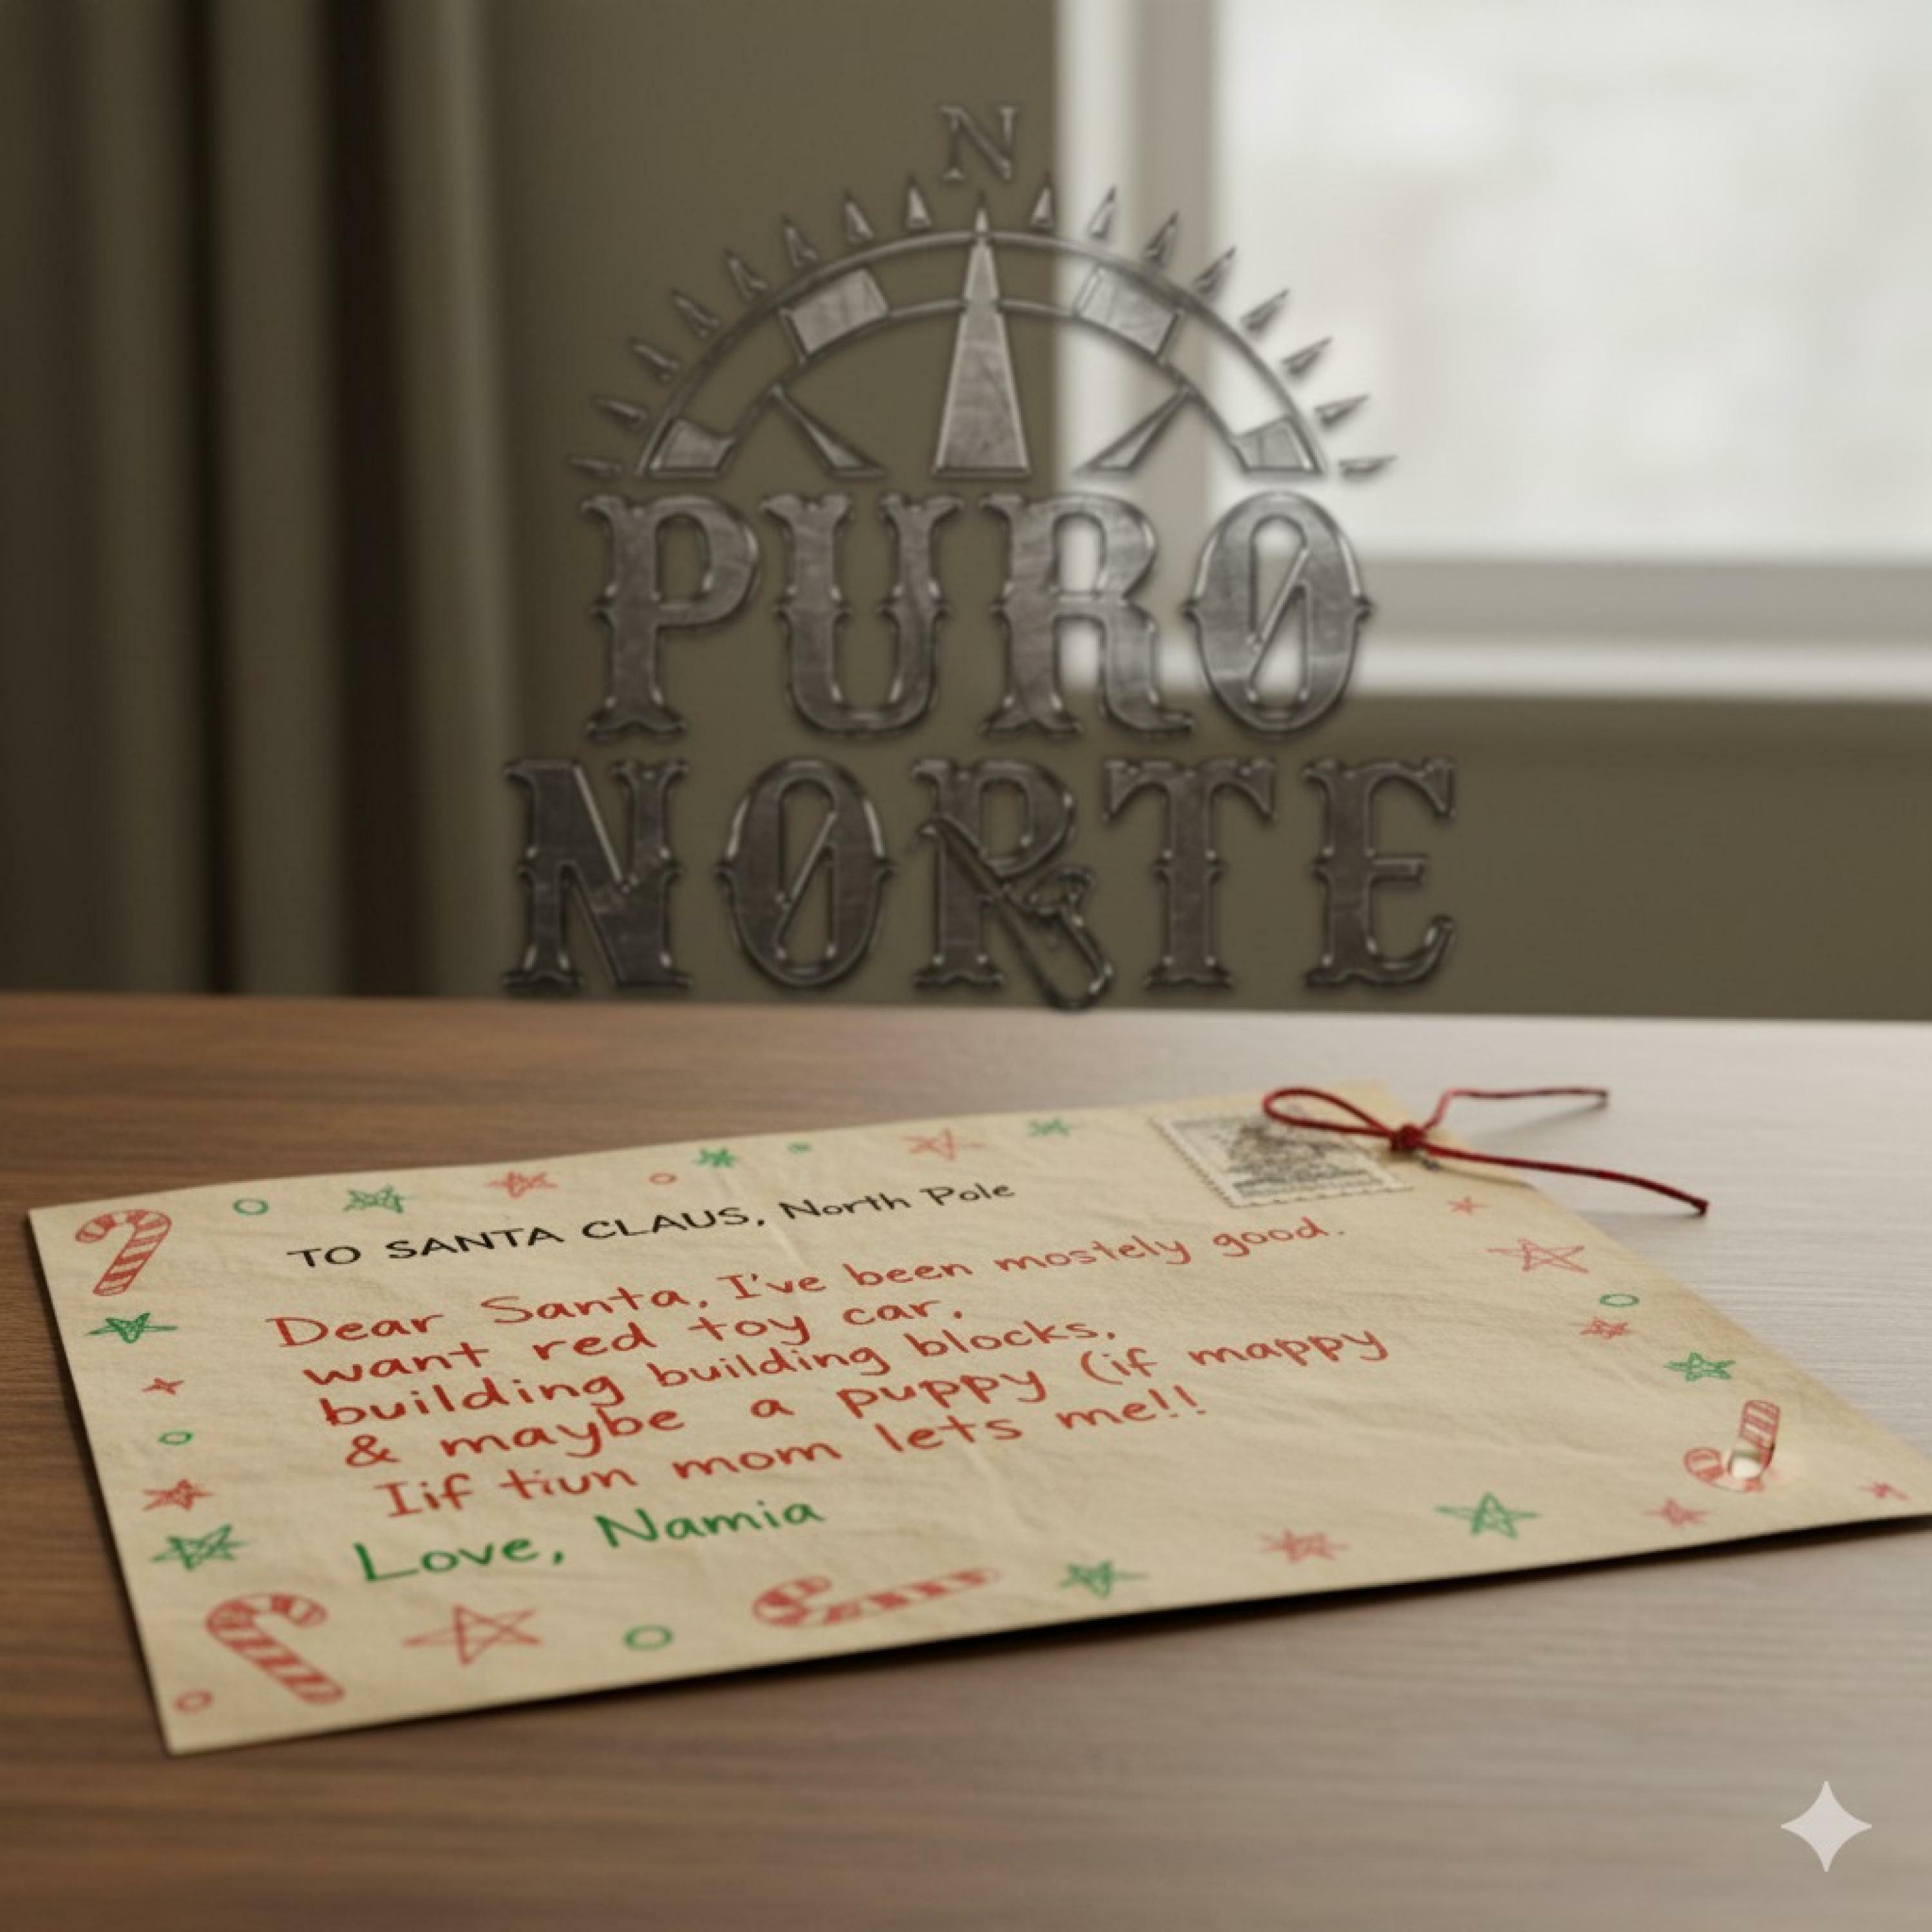 N
PURO
NORTE
TO SANTA CLAUS, North Pole
Dear Santa, I've been mostely good.
want red toy car,
building building blocks,
& maybe a puppy (if mappy
Iif tiun mom lets me!!
Love, Namia